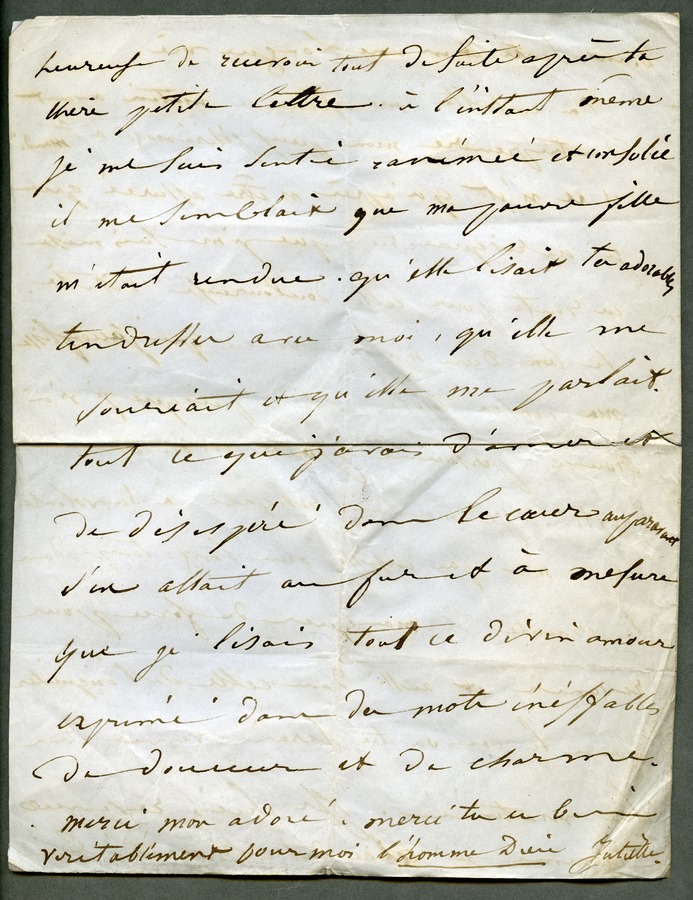 heureuse de recevoir tout de suite après ta
chère petite lettre. à l'instant même
je me suis sentie ranimée et consolée
il me semblait que ma pauvre fille
m'était rendue. qu'elle lisait tes adorables
tendresses avec moi, qu'elle me
souriait et qu'elle me parlait.
tout ce que j'avais d'amer et
de désespéré dans le cœur auparavant
s'en allait au fur et à mesure
que je lisais tout ce divin amour
exprimé dans des mots inéffables
de douceur et de charme.
merci mon adoré. merci tu es bien
véritablement pour moi l'homme Dieu Juliette